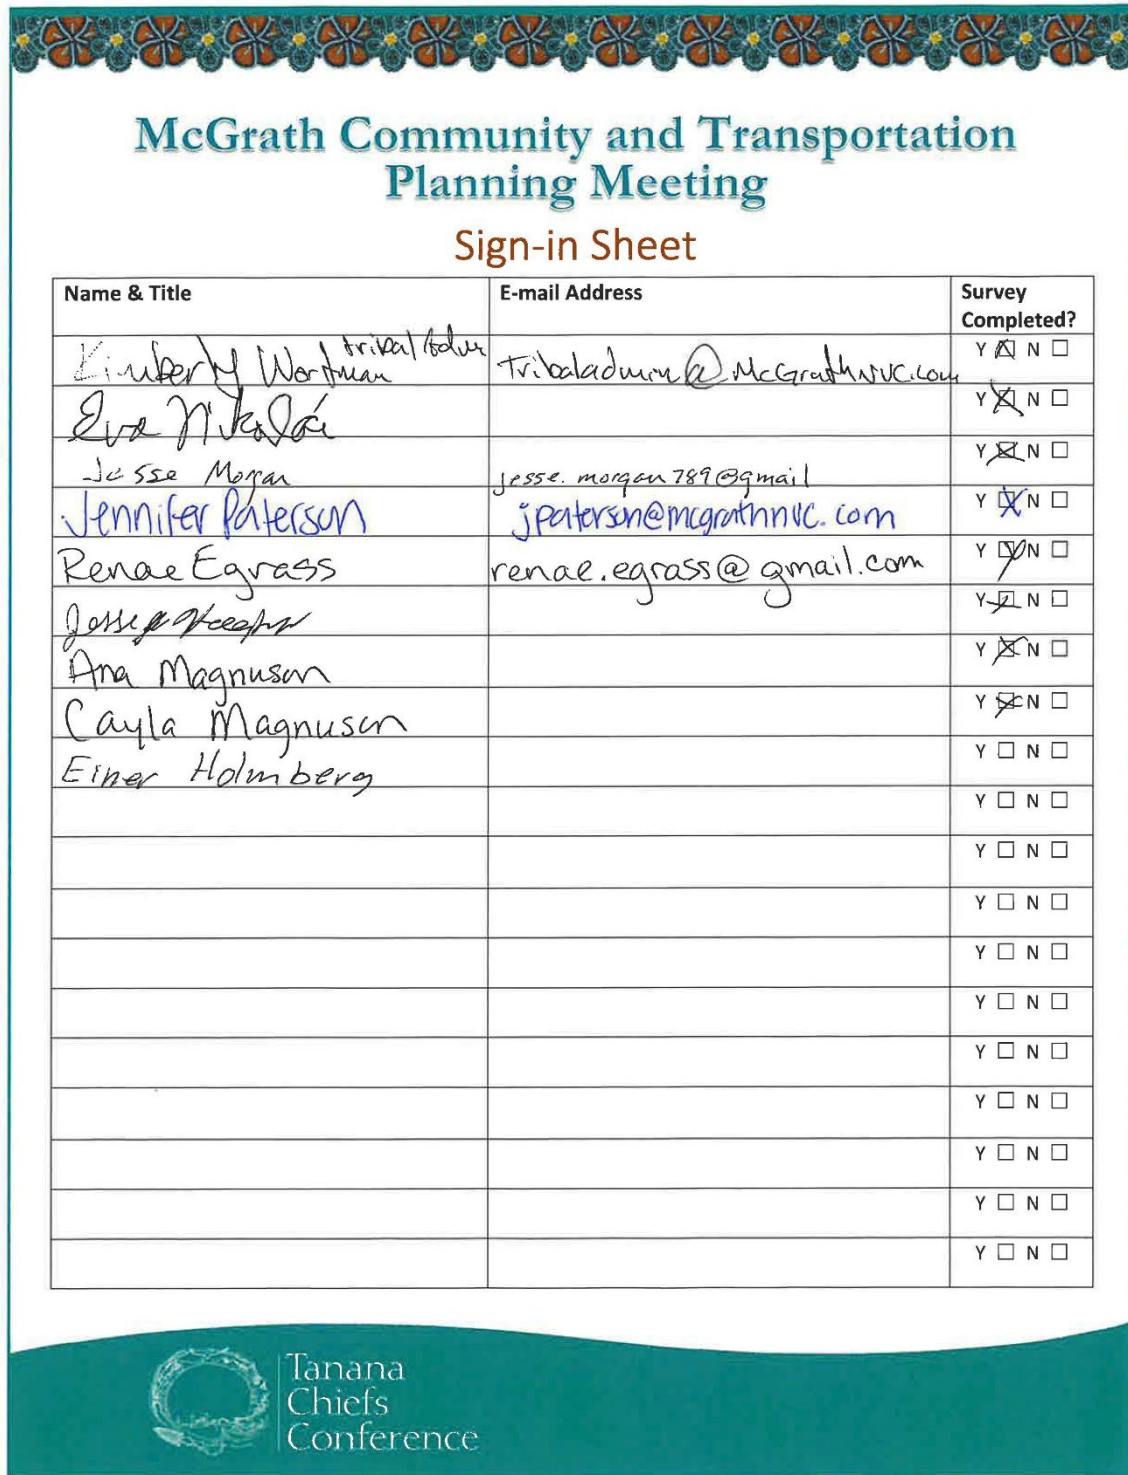 McGrath Community and Transportation
Planning Meeting
Sign-in Sheet
Name & Title E-mail Address Survey
Completed?
Kimberly Wortman tribal Tribaladmin@McGrathNVC.com Y ☒ N ☐
Eva Nikolai Y ☒ N ☐
Jesse Morgan jesse.morgan789@gmail Y ☒ N ☐
Jennifer Paterson jpaterson@mcgrathnvc.com Y ☒ N ☐
Renae Egrass renae.egrass@gmail.com Y ☒ N ☐
Y ☒ N ☐
Ana Magnuson Y ☒ N ☐
Cayla Magnuson Y ☒ N ☐
Einer Holmberg Y ☐ N ☐
Y ☐ N ☐
Y ☐ N ☐
Y ☐ N ☐
Y ☐ N ☐
Y ☐ N ☐
Y ☐ N ☐
Y ☐ N ☐
Y ☐ N ☐
Y ☐ N ☐
Y ☐ N ☐
Tanana
Chiefs
Conference